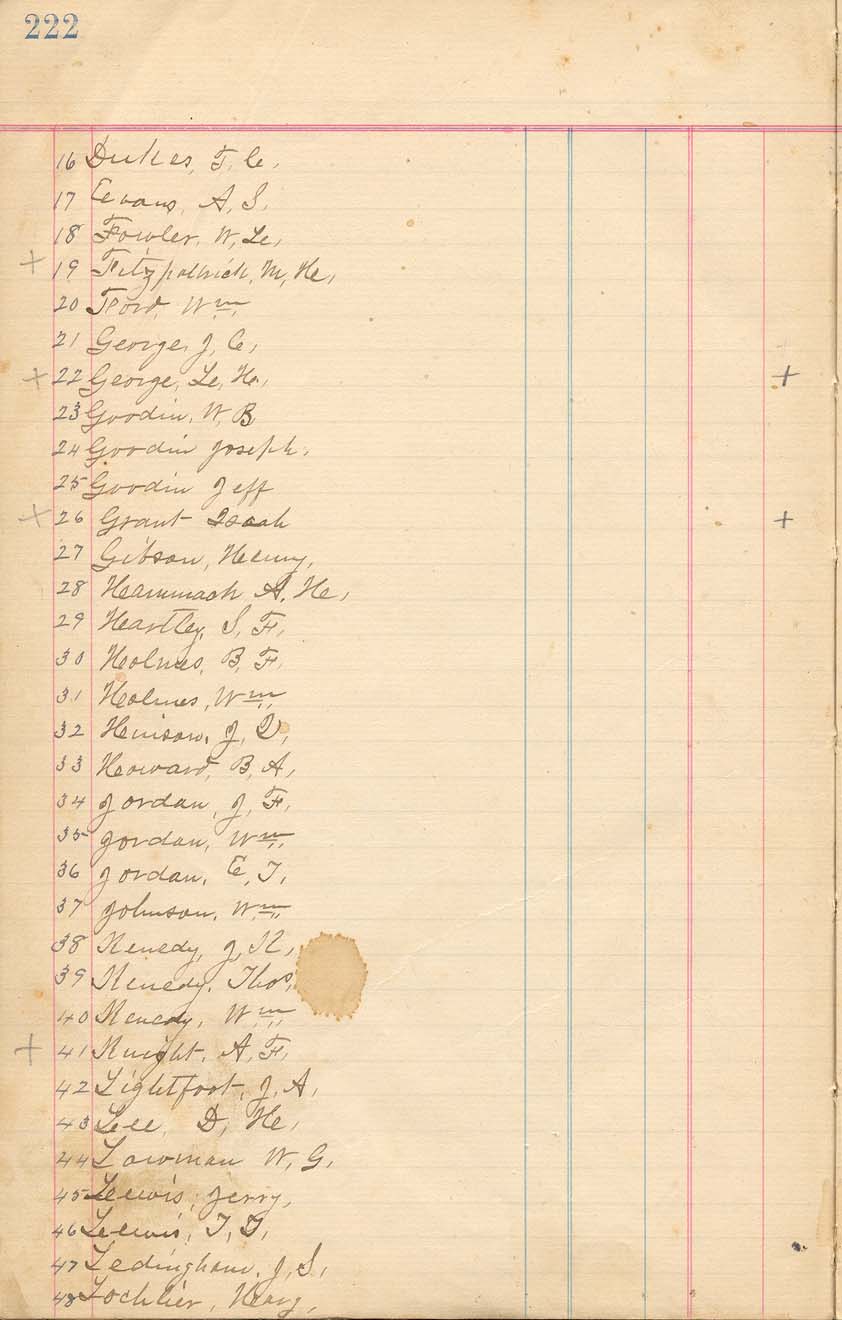 222
16 Dukes, T. C.
17 Evans, A. S.
18 Fowler, W. L.
+ 19 Fitzpattrick, M. H.
20 Ford, Wm
21 George, J. C.
+ 22 George, L. H. +
23 Goodin, W. B.
24 Goodin Joseph.
25 Goodin Jeff
+ 26 Grant Isaah +
27 Gibson, Henry,
28 Hammach A. H.
29 Hartley, S. F.
30 Holmes, B. F.
31 Holmes, Wm
32 Hinson, J. D.
33 Howard, B. A.
34 Jordan, J. F.
35 Jordan, Wm
36 Jordan, E. T.
37 Johnson, Wm
38 Kenedy, J. K.
39 Kenedy, Thos,
40 Kenedy, Wm
+ 41 Knight, A. F.
42 Lightfoot, J. A.
43 Lee, D. H.
44 Lowman W. G.
45 Lewis, Jerry,
46 Lewis, T. J.
47 Ledingham, J. S.
48 Lochlier,